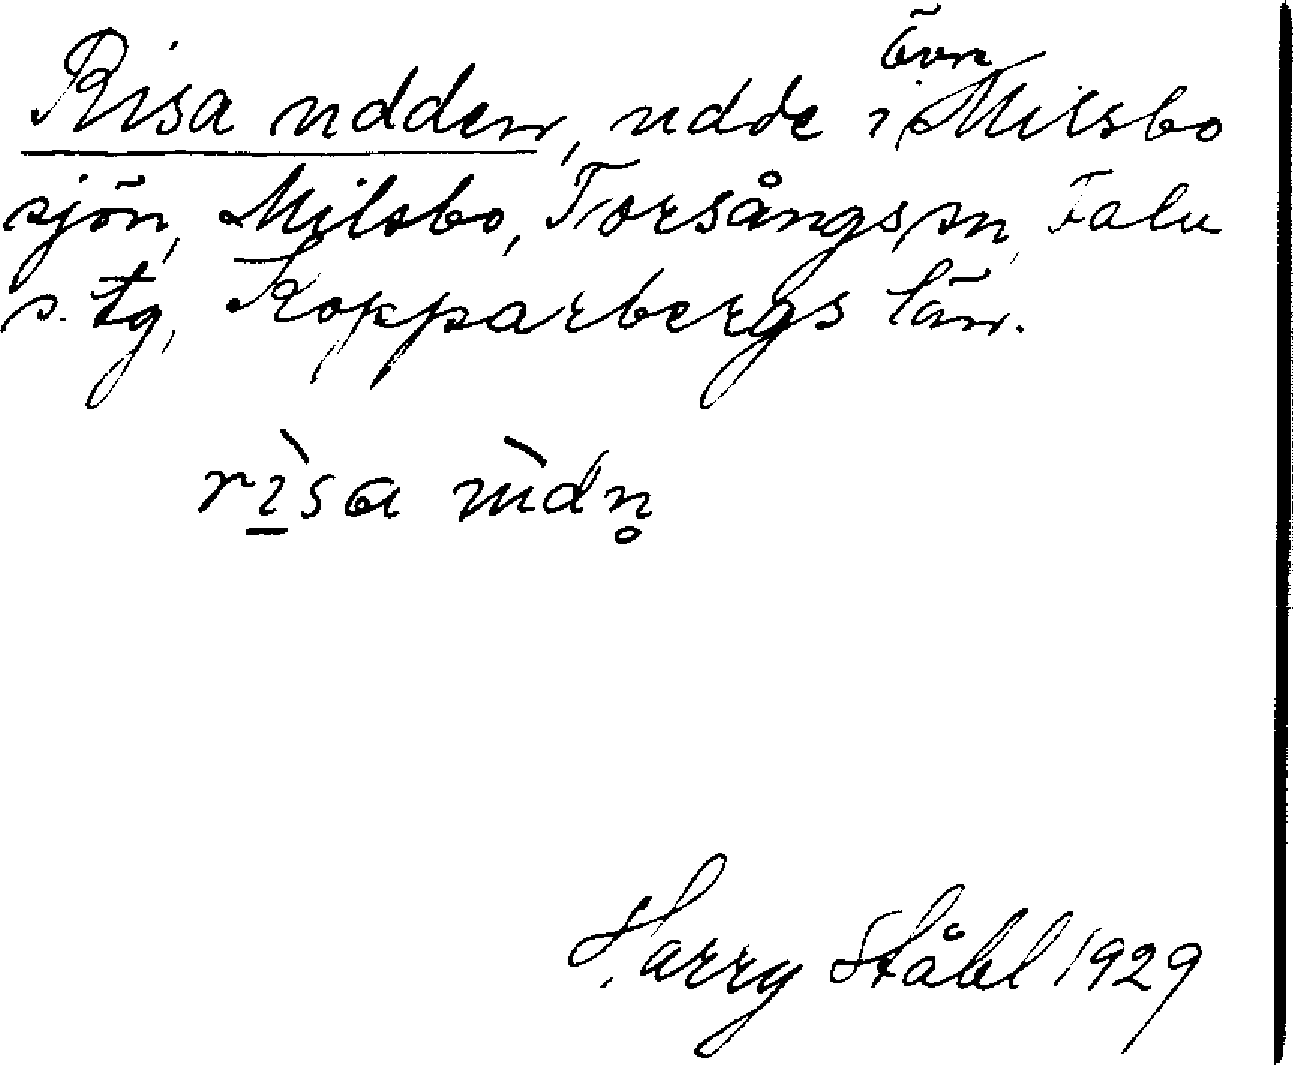 Övre
Risa udden, udde i Milsbo
sjön, Milsbo, Torsångs sn, Falu
s. tg, Kopparbergs län.
rìsa ùdn̥
Harry Ståhl 1929